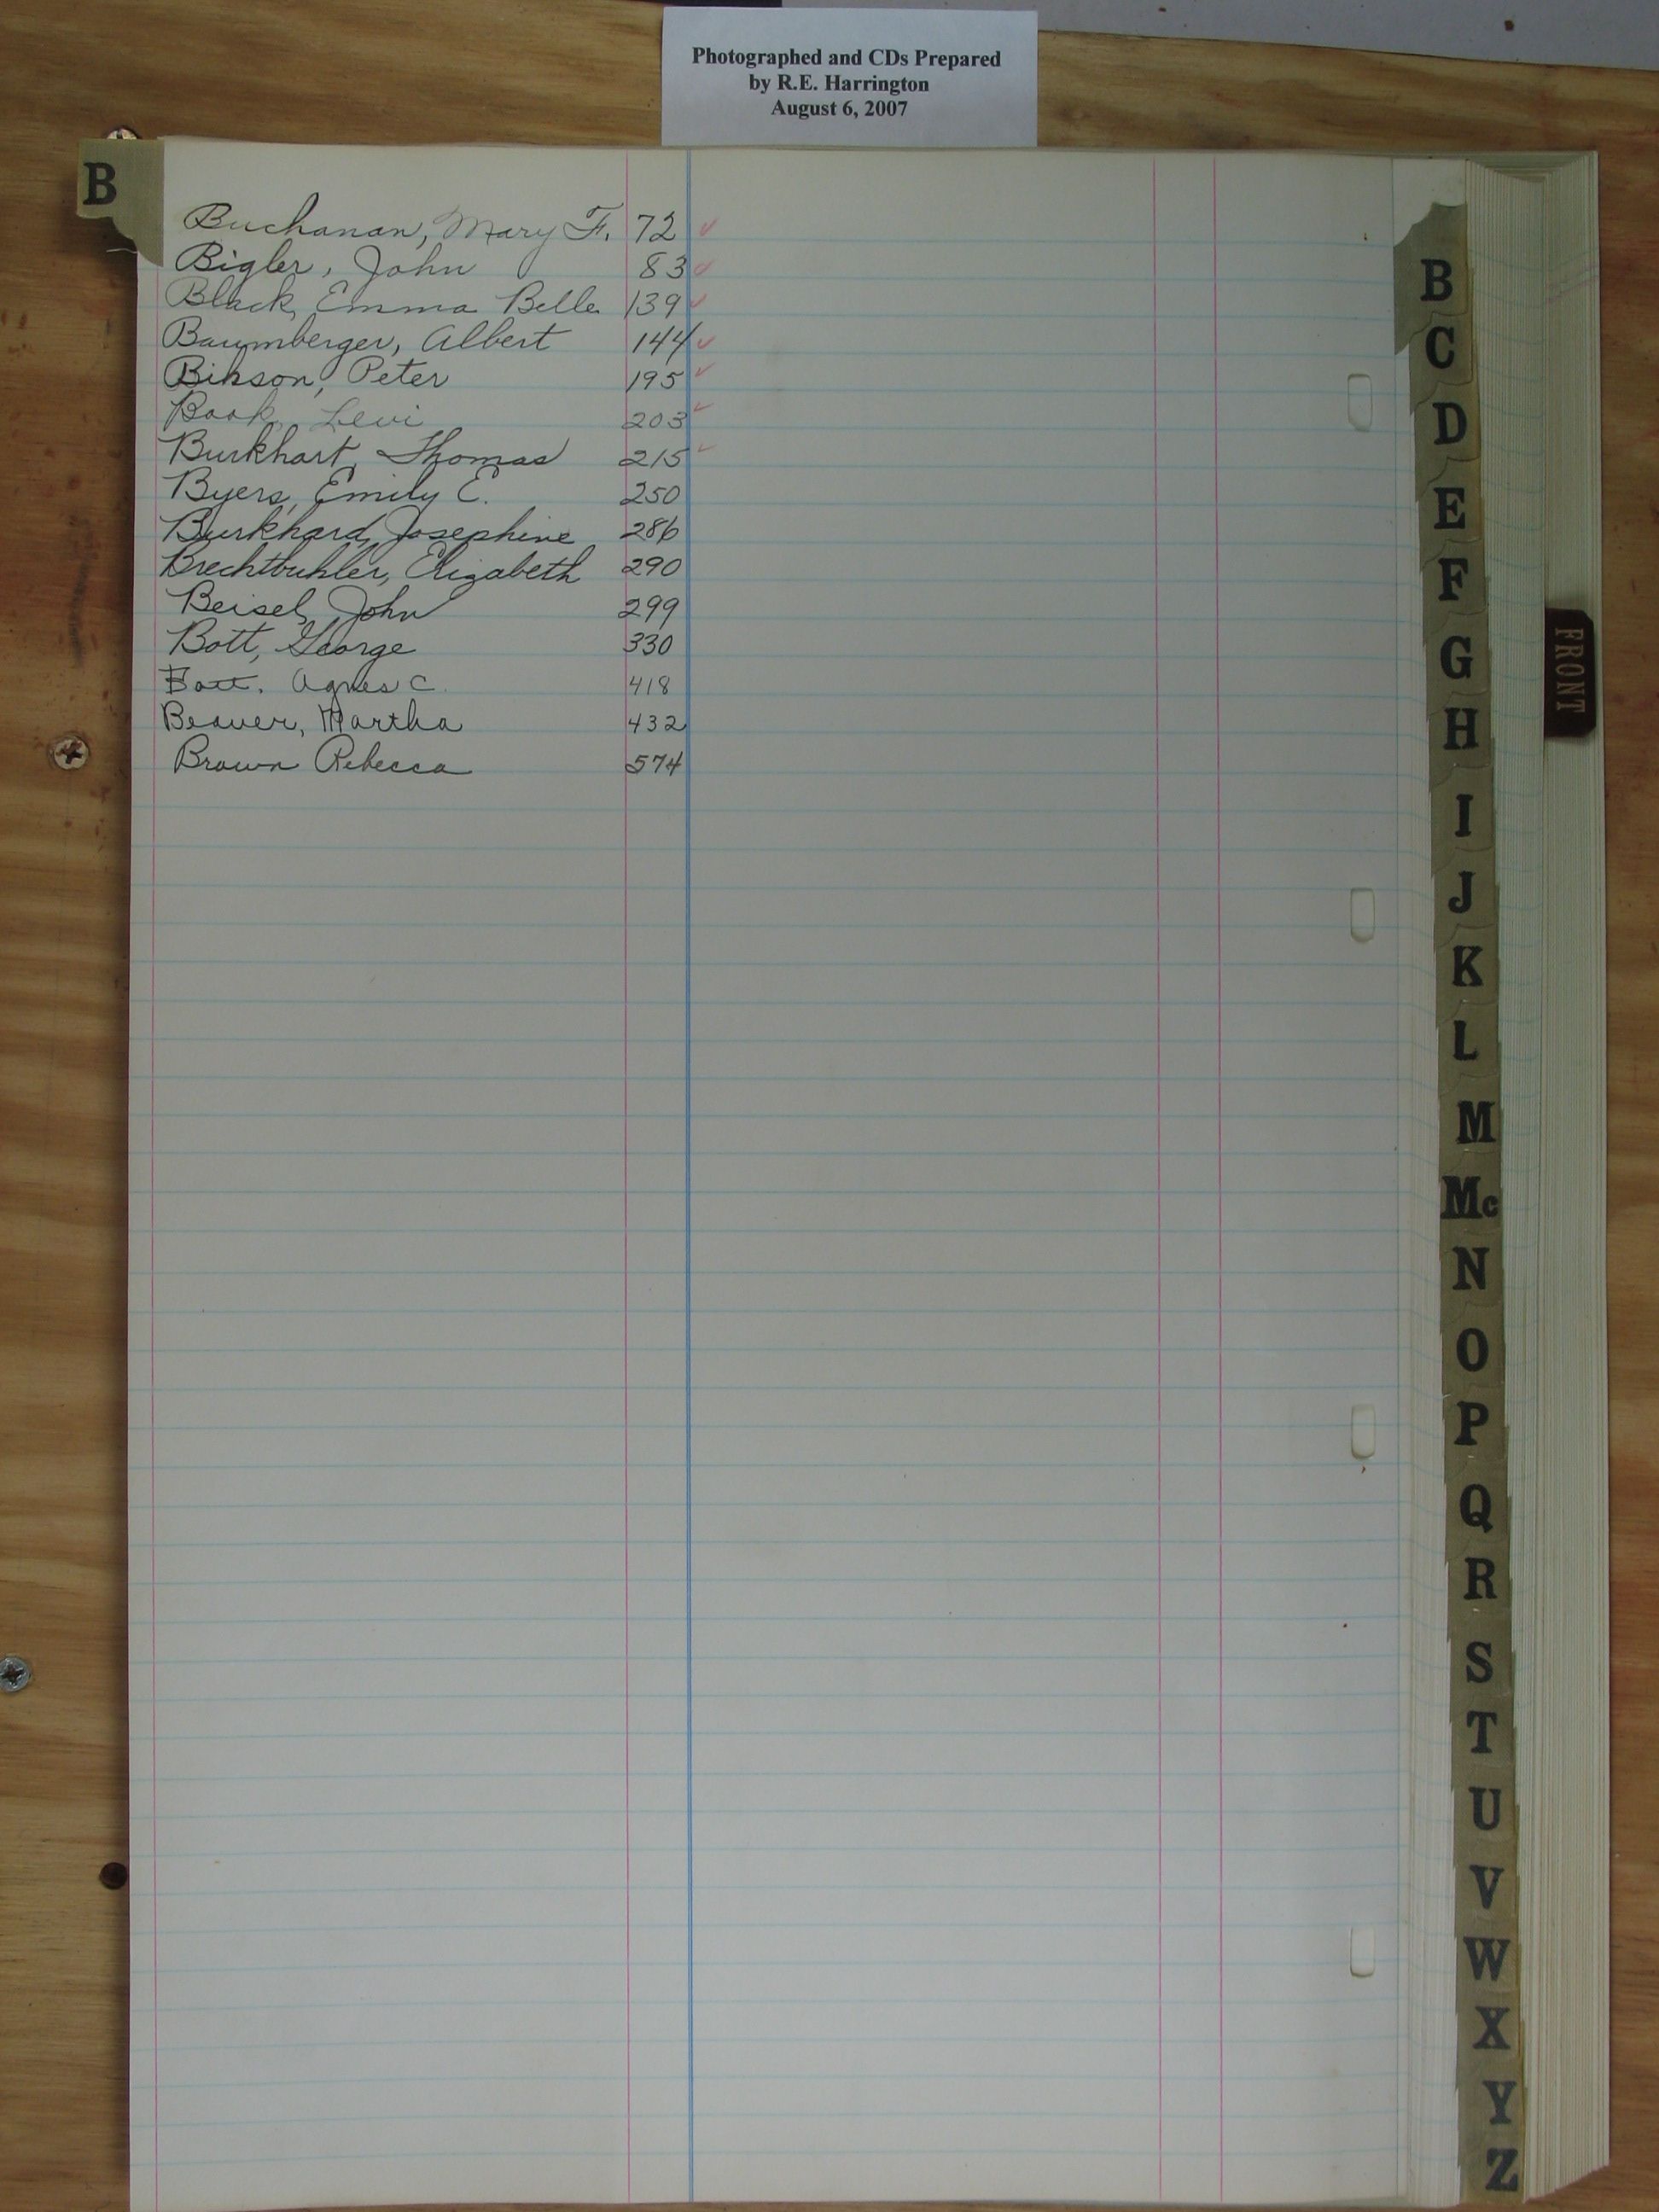 Photographed and CDs Prepared
by R.E. Harrington
August 6, 2007
B
Buchanan, Mary F. 72
Bigler, John 83
Black, Emma Belle 139
Baumberger, Albert 144
Binson, Peter 195
Book, Levi 203
Burkhart, Thomas 215
Byers, Emily E. 250
Burkhard, Josephine 286
Brechtbuhler, Elizabeth 290
Beisel, John 299
Bott, George 330
Bott, Agnes C. 418
Beaver, Martha 432
Brown Rebecca 574
B
C
D
E
F
G
H
I
J
K
L
M
Mc
N
O
P
Q
R
S
T
U
V
W
X
Y
Z
FRONT